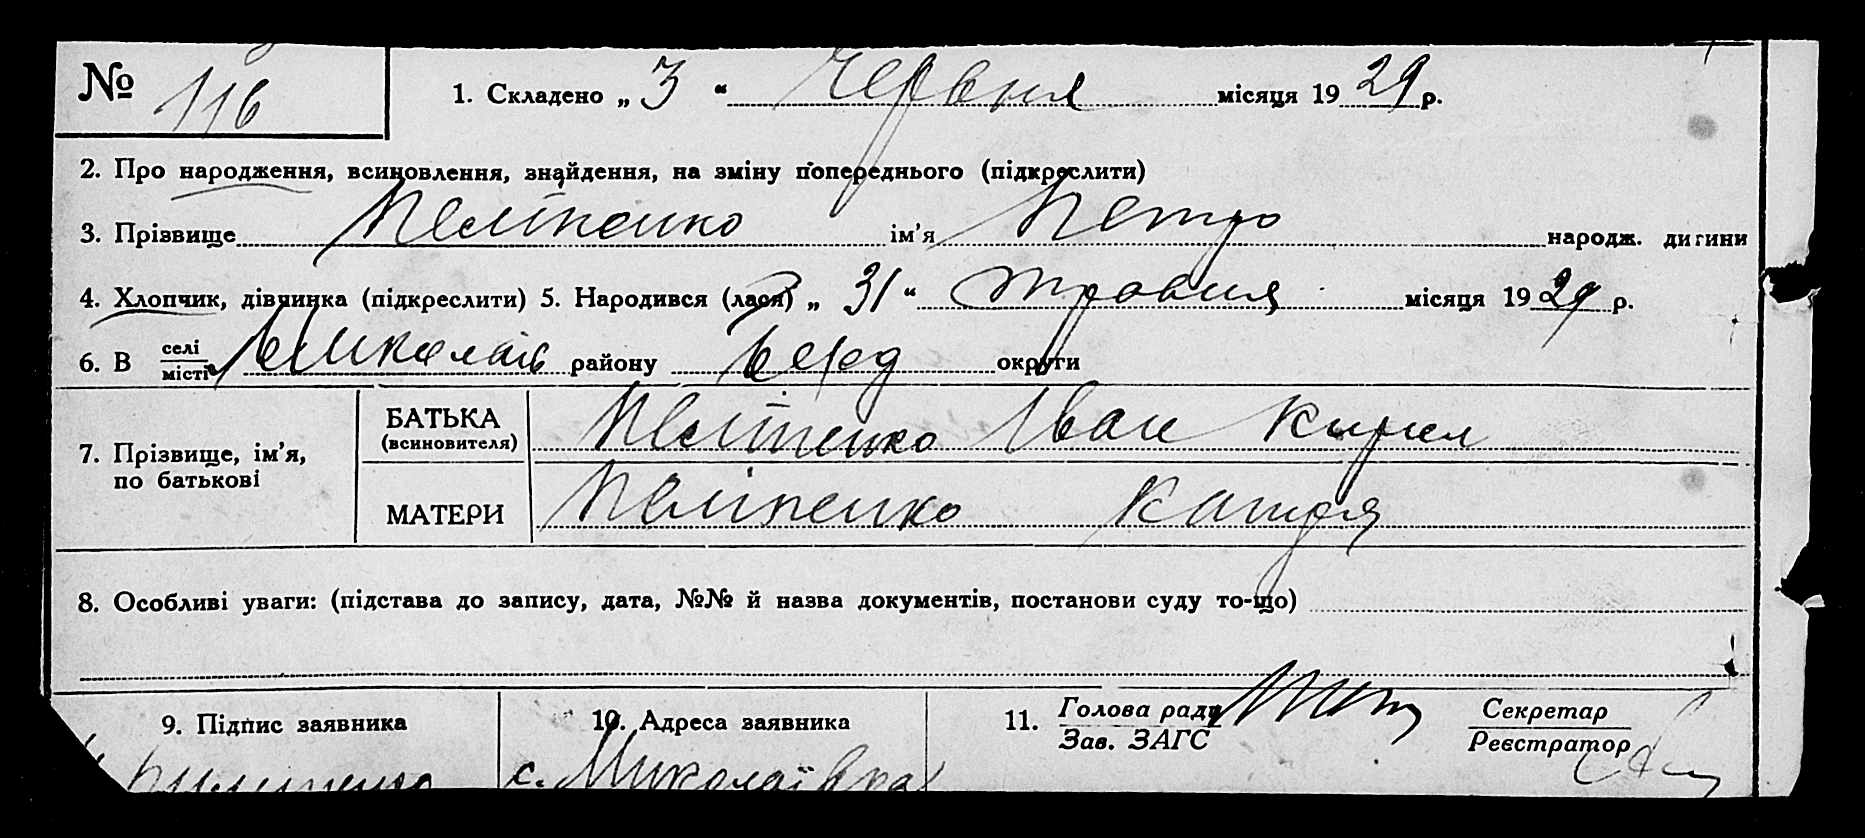 № 116 1. Складено „ 3 “ Червня місяця 19 29 р.
2. Про народження, всиновлення, знайдення, на зміну попереднього (підкреслити)
3. Прізвище Пеліпенко ім’я Петро народж. дитини
4. Хлопчик, дівчинка (підкреслити) 5. Народився (лася) „ 31 “ травня місяця 19 29 р.
6. В селі місті Миколаїв району Берд округи
7. Прізвище, ім’я, по батькові
БАТЬКА (всиновителя) Пеліпенко Іван Кирил
МАТЕРИ Пеліпенко Катря
8. Особливі уваги: (підстава до запису, дата, №№ й назва документів, постанови суду то-що)
9. Підпис заявника 10. Адреса заявника 11. Голова ради Зав. ЗАГС Секретар Реєстратор
с. Миколаївка